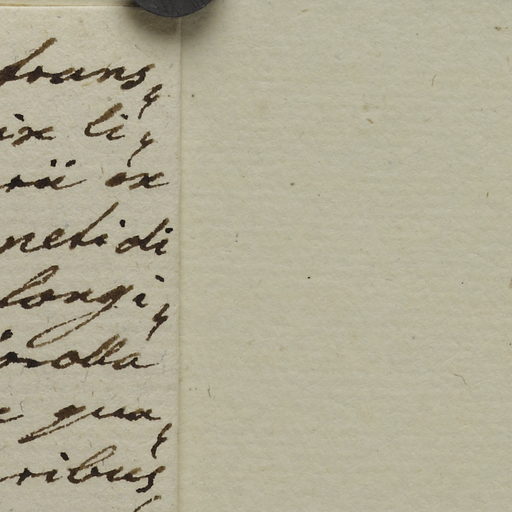 trans⸗
ix li⸗
rii ex
netidi
longi⸗
corolla
e qua⸗
ribus⸗